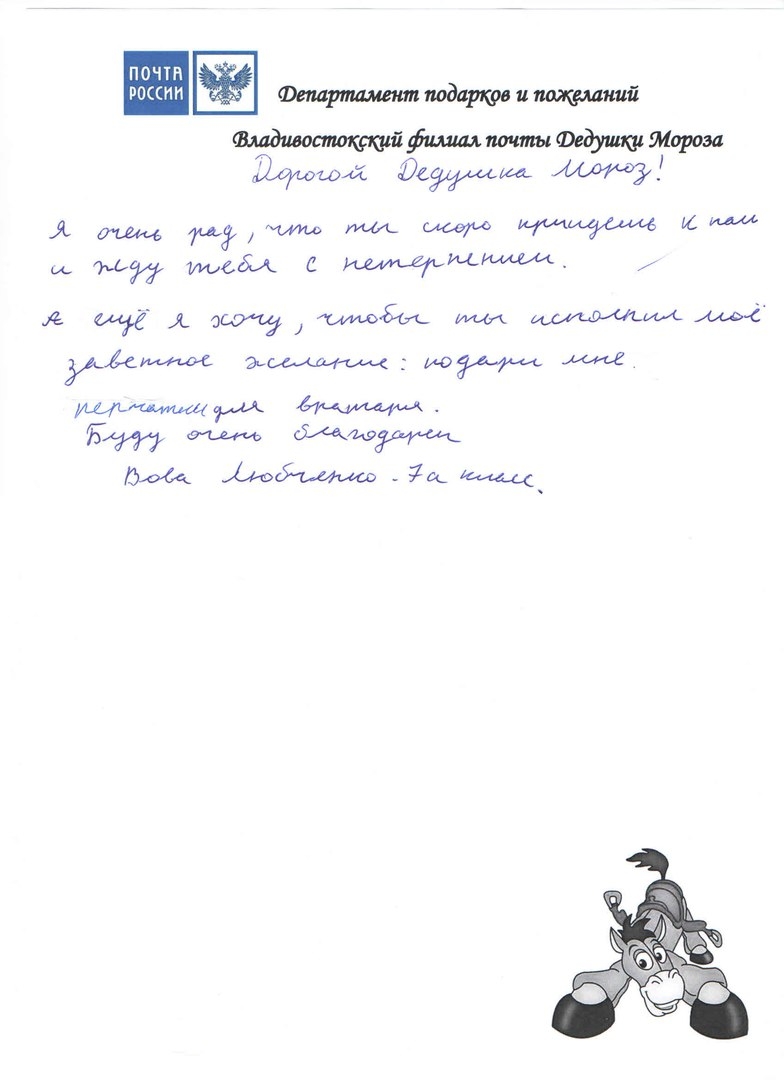 ПОЧТА
РОССИИ
Департамент подарков и пожеланий
Владивостокский филиал почты Дедушки Мороза
Дорогой Дедушка Мороз!
Я очень рад, что ты скоро приидешь к нам
и жду тебя с нетерпением.
А ещё я хочу, чтобы ты исполнил моё
заветное желание: подари мне
перчатки для вратаря.
Буду очень благодарен
Вова Любченко - 7а класс.